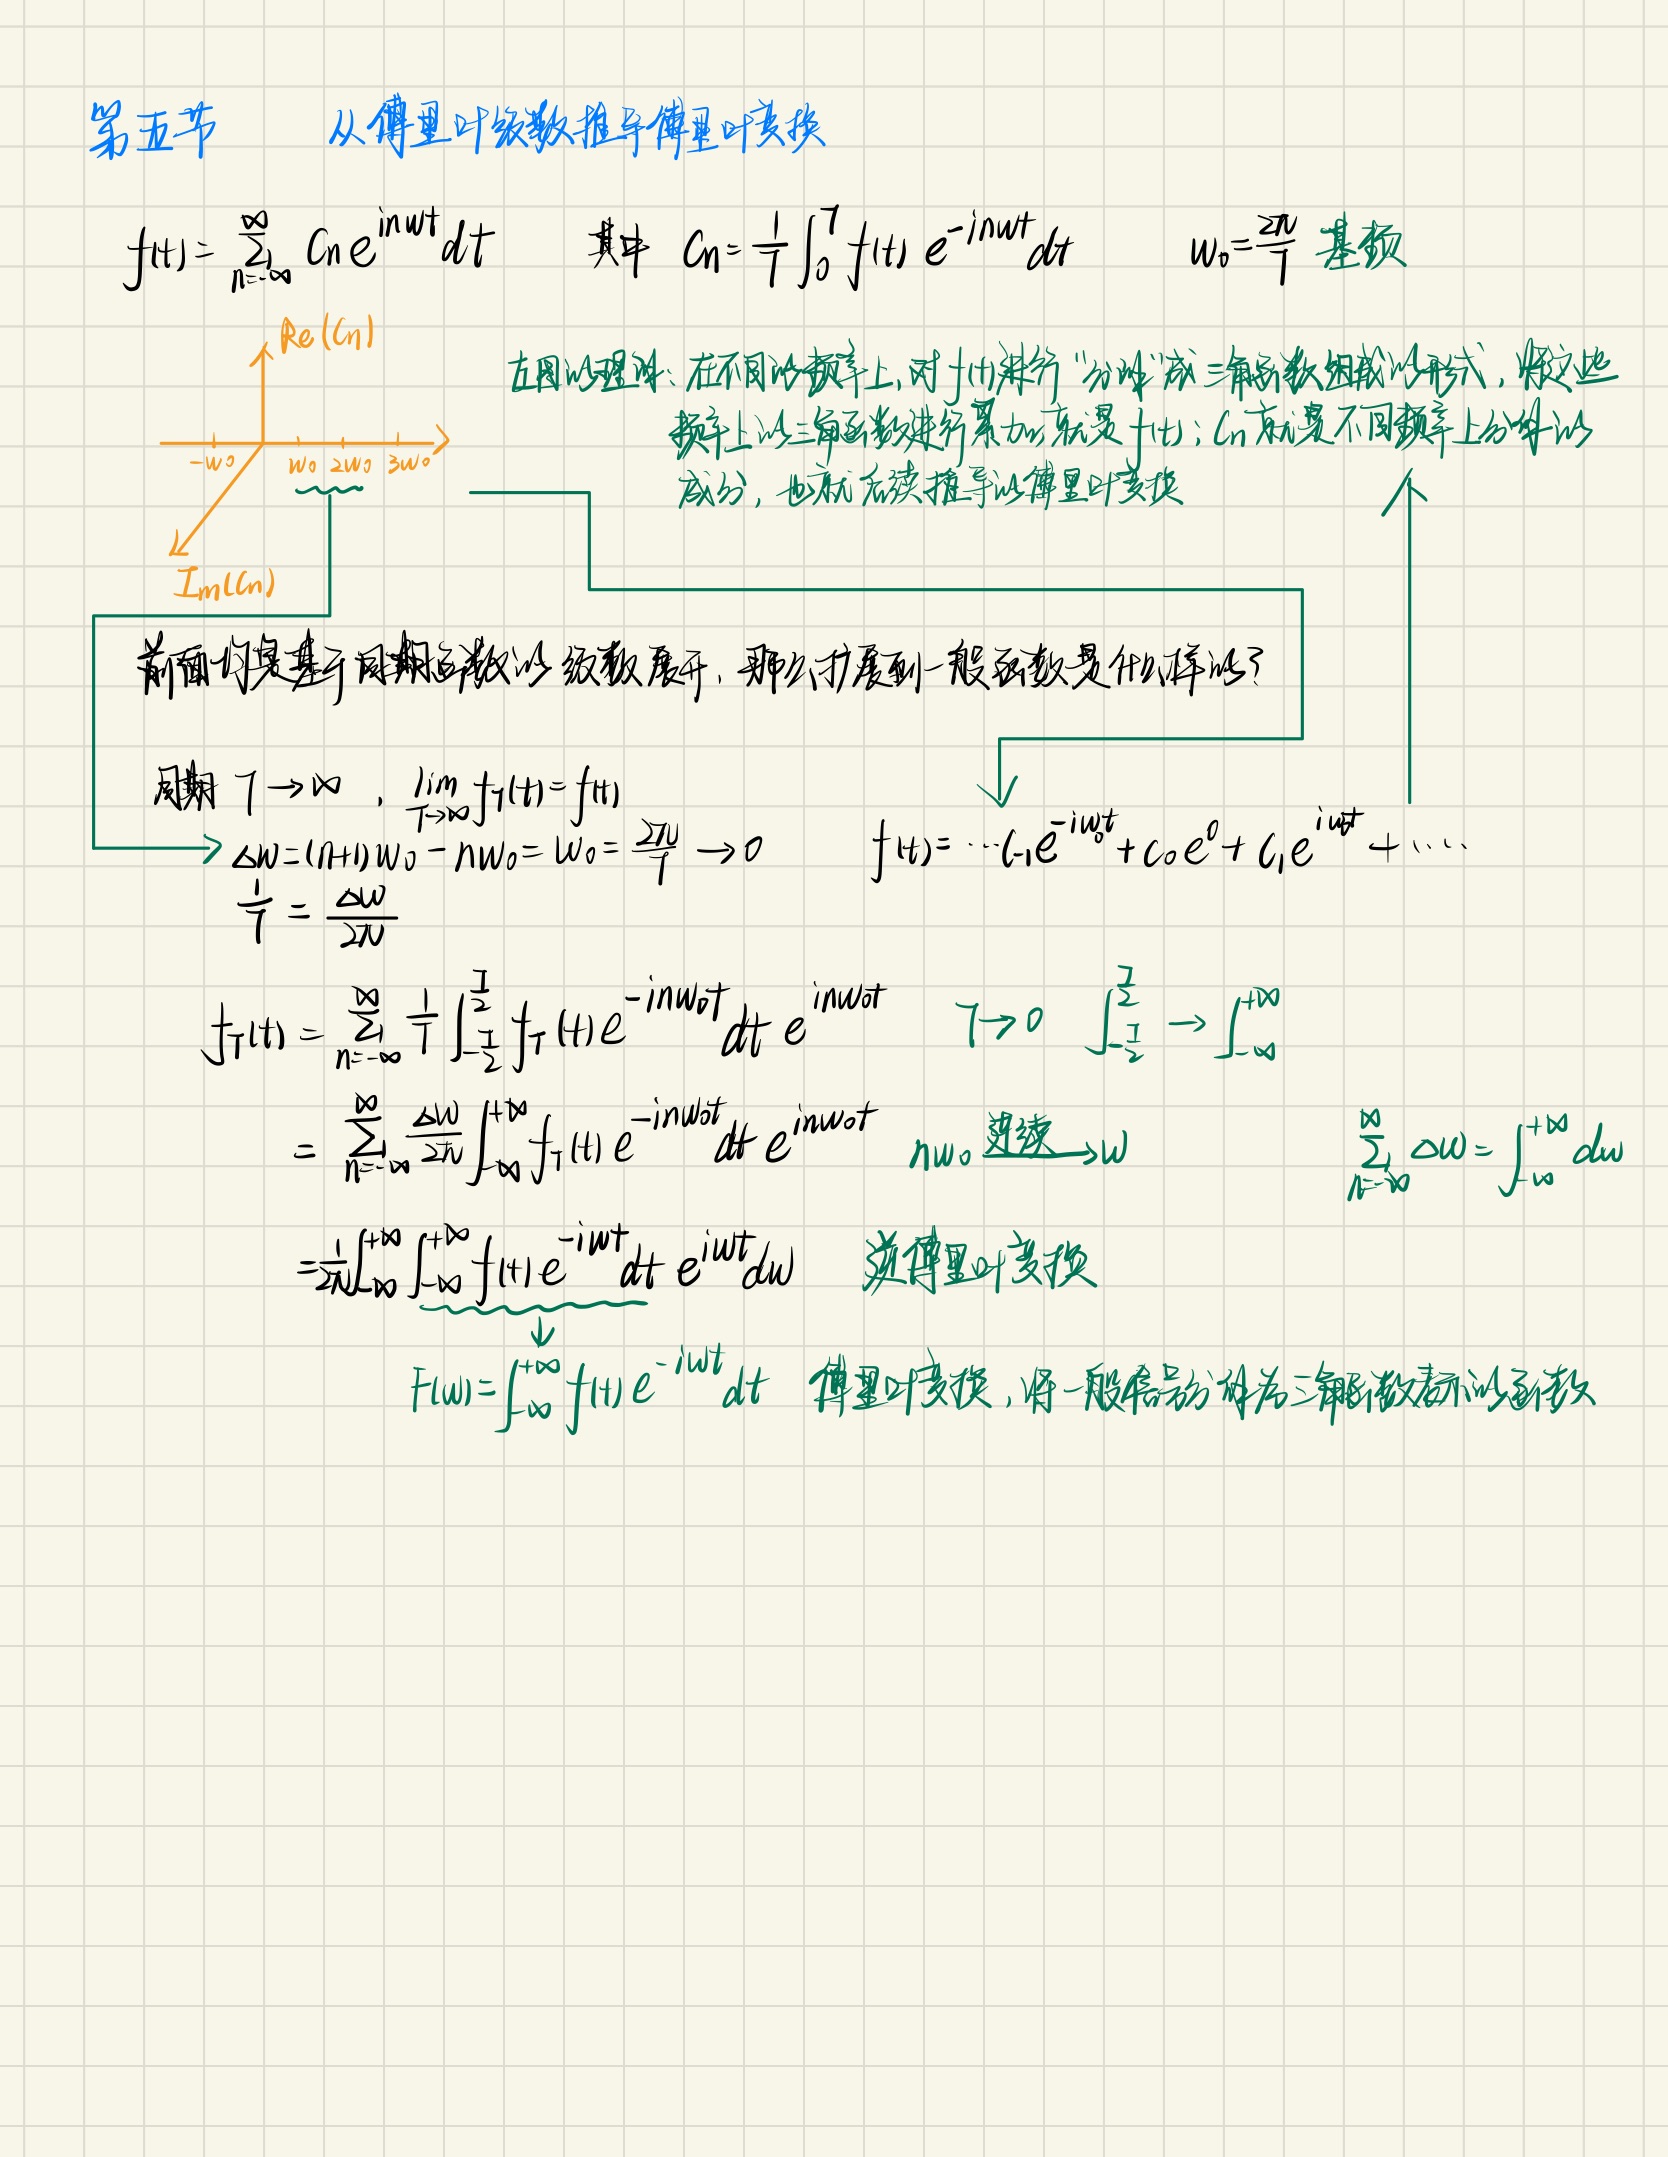 第五节 从傅里叶级数推导傅里叶变换
f(t) = Σ_{n=-∞}^{∞} Cn e^{inwt} dt 其中 Cn = 1/T ∫_0^T f(t) e^{-inwt} dt w₀ = 2π/T 基频
Re(Cn)
-w₀ w₀ 2w₀ 3w₀
Im(Cn)
左图的理解：在不同的频率上，对f(t)进行“分解”成三角函数组成的形式，将这些
频率上的三角函数进行累加就是f(t)；Cn就是不同频率上分解的
成分，也就后续推导的傅里叶变换
前面均是基于周期函数的级数展开，那么扩展到一般函数是什么样的？
周期 T→∞，lim_{T→∞} f_T(t) = f(t)
Δw = (n+1)w₀ - nw₀ = w₀ = 2π/T → 0 f(t) = ⋯C₋₁e^{-iw₀t} + C₀e⁰ + C₁e^{iw₀t} + ⋯⋯
1/T = Δw/2π
f_T(t) = Σ_{n=-∞}^{∞} 1/T ∫_{-T/2}^{T/2} f_T(t) e^{-inw₀t} dt e^{inw₀t} T→0 ∫_{-T/2}^{T/2} → ∫_{-∞}^{+∞}
= Σ_{n=-∞}^{∞} Δw/2π ∫_{-∞}^{+∞} f_T(t) e^{-inw₀t} dt e^{inw₀t} nw₀ 连续→ w Σ_{n=-∞}^{∞} Δw = ∫_{-∞}^{+∞} dw
= 1/2π ∫_{-∞}^{+∞} ∫_{-∞}^{+∞} f(t) e^{-iwt} dt e^{iwt} dw 逆傅里叶变换
↓
F(w) = ∫_{-∞}^{+∞} f(t) e^{-iwt} dt 傅里叶变换，将一般信号分解为三角函数表示的函数